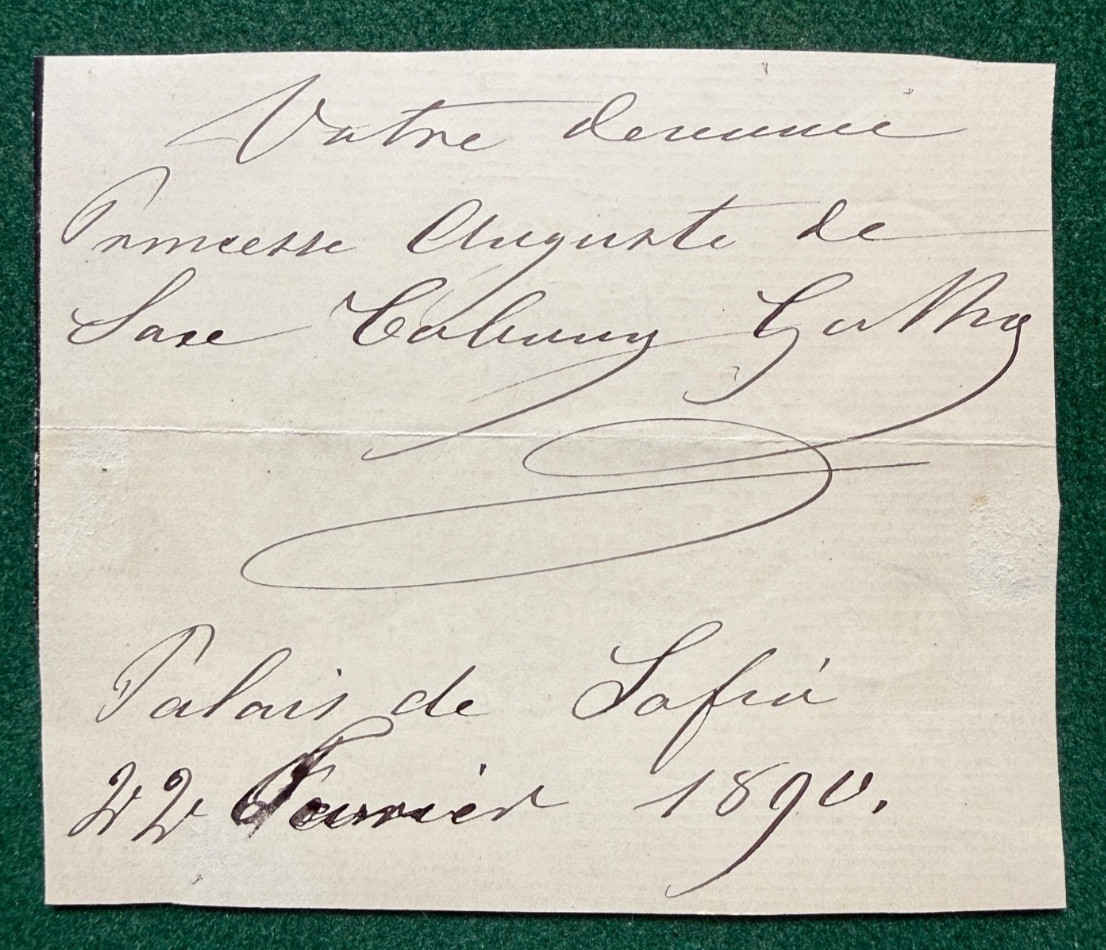 Votre
Princesse Auguste de
Saxe Cobourg Gotha
Palais de Sofia
22 Fevrier 1890.